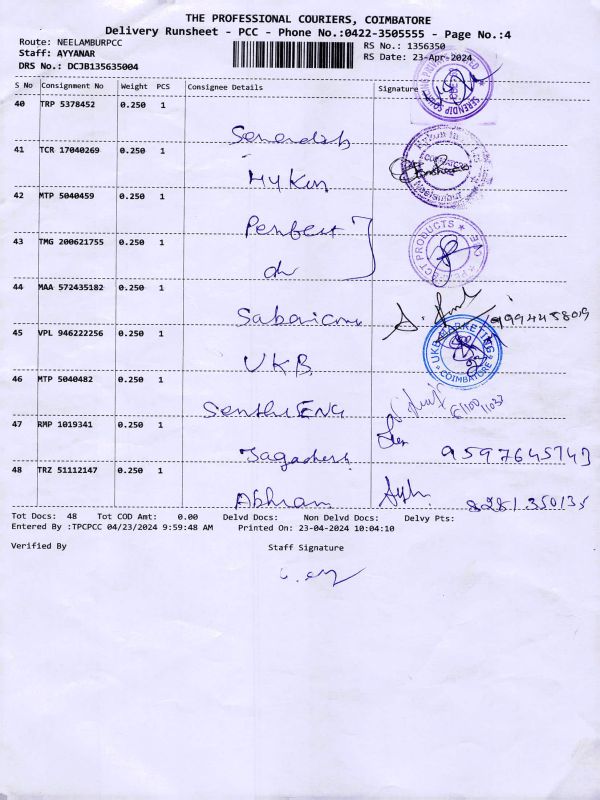 THE PROFESSIONAL COURIERS, COIMBATORE
Delivery Runsheet - PCC - Phone No.:0422-3505555 - Page No.:4
Route: NEELAMBURPCC
RS No.: 1356350
Staff: AYYANAR
RS Date: 23-Apr-2024
DRS No.: DCJB135635004
S No Consignment No Weight PCS Consignee Details Signature
40 TRP 5378452 0.250 1
41 TCR 17040269 0.250 1
Hykon
42 MTP 5040459 0.250 1
Perfect
43 TMG 200621755 0.250 1
do
44 MAA 572435182 0.250 1
Sabari 9994458019
45 VPL 946222256 0.250 1
UKB UKB MARKETING COIMBATORE
46 MTP 5040482 0.250 1
Senthil ENG
47 RMP 1019341 0.250 1
Jagadhesh 9597645743
48 TRZ 51112147 0.250 1
Abhram 8281350135
Tot Docs: 48 Tot COD Amt: 0.00 Delvd Docs: Non Delvd Docs: Delvy Pts:
Entered By :TPCPCC 04/23/2024 9:59:48 AM Printed On: 23-04-2024 10:04:10
Verified By Staff Signature